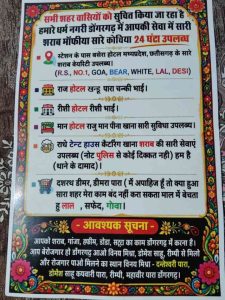 सभी शहर वासियों को सुचित किया जा रहा है
हमारे धर्म नगरी डोंगरगढ़ में आपकी सेवा में सारी
शराब माफीया सारे कोचिया 24 घंटा उपलब्ध
स्टेशन के पास बसेरा होटल मध्यप्रदेश, छत्तीसगढ़ के सारे
शराब वेयरिटी उपलब्ध।
(R.S., NO.1, GOA, BEAR, WHITE, LAL, DESI)
राज होटल खन्डू पारा चम्की भाई।
रीशी होटल रीशी भाई।
मान होटल राजु मान पीना खाना सारी सुविधा उपलब्ध।
राधे टेन्ट हाउस कैटरिंग खाना शराब की सारी सेवाएं
उपलब्ध (नोट पुलिस से कोई दिक्कत नही) हम है
(थाने के दामाद)।
दशरथ डीमर, डीमरा पारा ( मैं अपाहिज हूँ तो क्या हुआ
सारा शहर मेरा काम बंद नहीं करा सकता माल में बेचता
हु लाल , सफेद, गोवा।
- आवश्यक सूचना -
आपको शराब, गांजा, अफीम, डोडा, सट्टा का काम डोंगरगढ़ में करना हैं।
आप बेरोजगार हो डोंगरगढ़ आओ विनय मिश्रा, डोमेश साहू, रीम्पी से मिलो
और रोजगार पाओ मिलने का स्थान विनय मिश्रा - दन्तेश्वरी पारा,
डोमेश साहू कचवारी पारा, रीम्पी, महावीर पारा डोंगरगढ़।